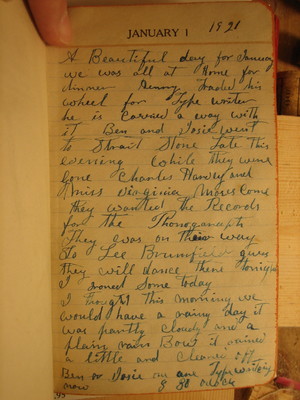 JANUARY 1
1921
A Beautiful day for January
we was all at Home for
dinner Henory Traded his
wheel for Type writer
he is carried a way with
it Ben and Josie went
to Strait Stone late this
evening While they were
gone Charles Harvey and
miss virginia moves come
they wanted the Records
for the Phonogarapts
They was on their way
to Lee Brumfield
they will dance there tonight
I ironed some today
I thought this morning we
would have a rainy day it
was partly cloudy and a
plain rain Bow it rained
a little and cleared off
Ben or Josie on are Typewriting
now 8 30 oclock